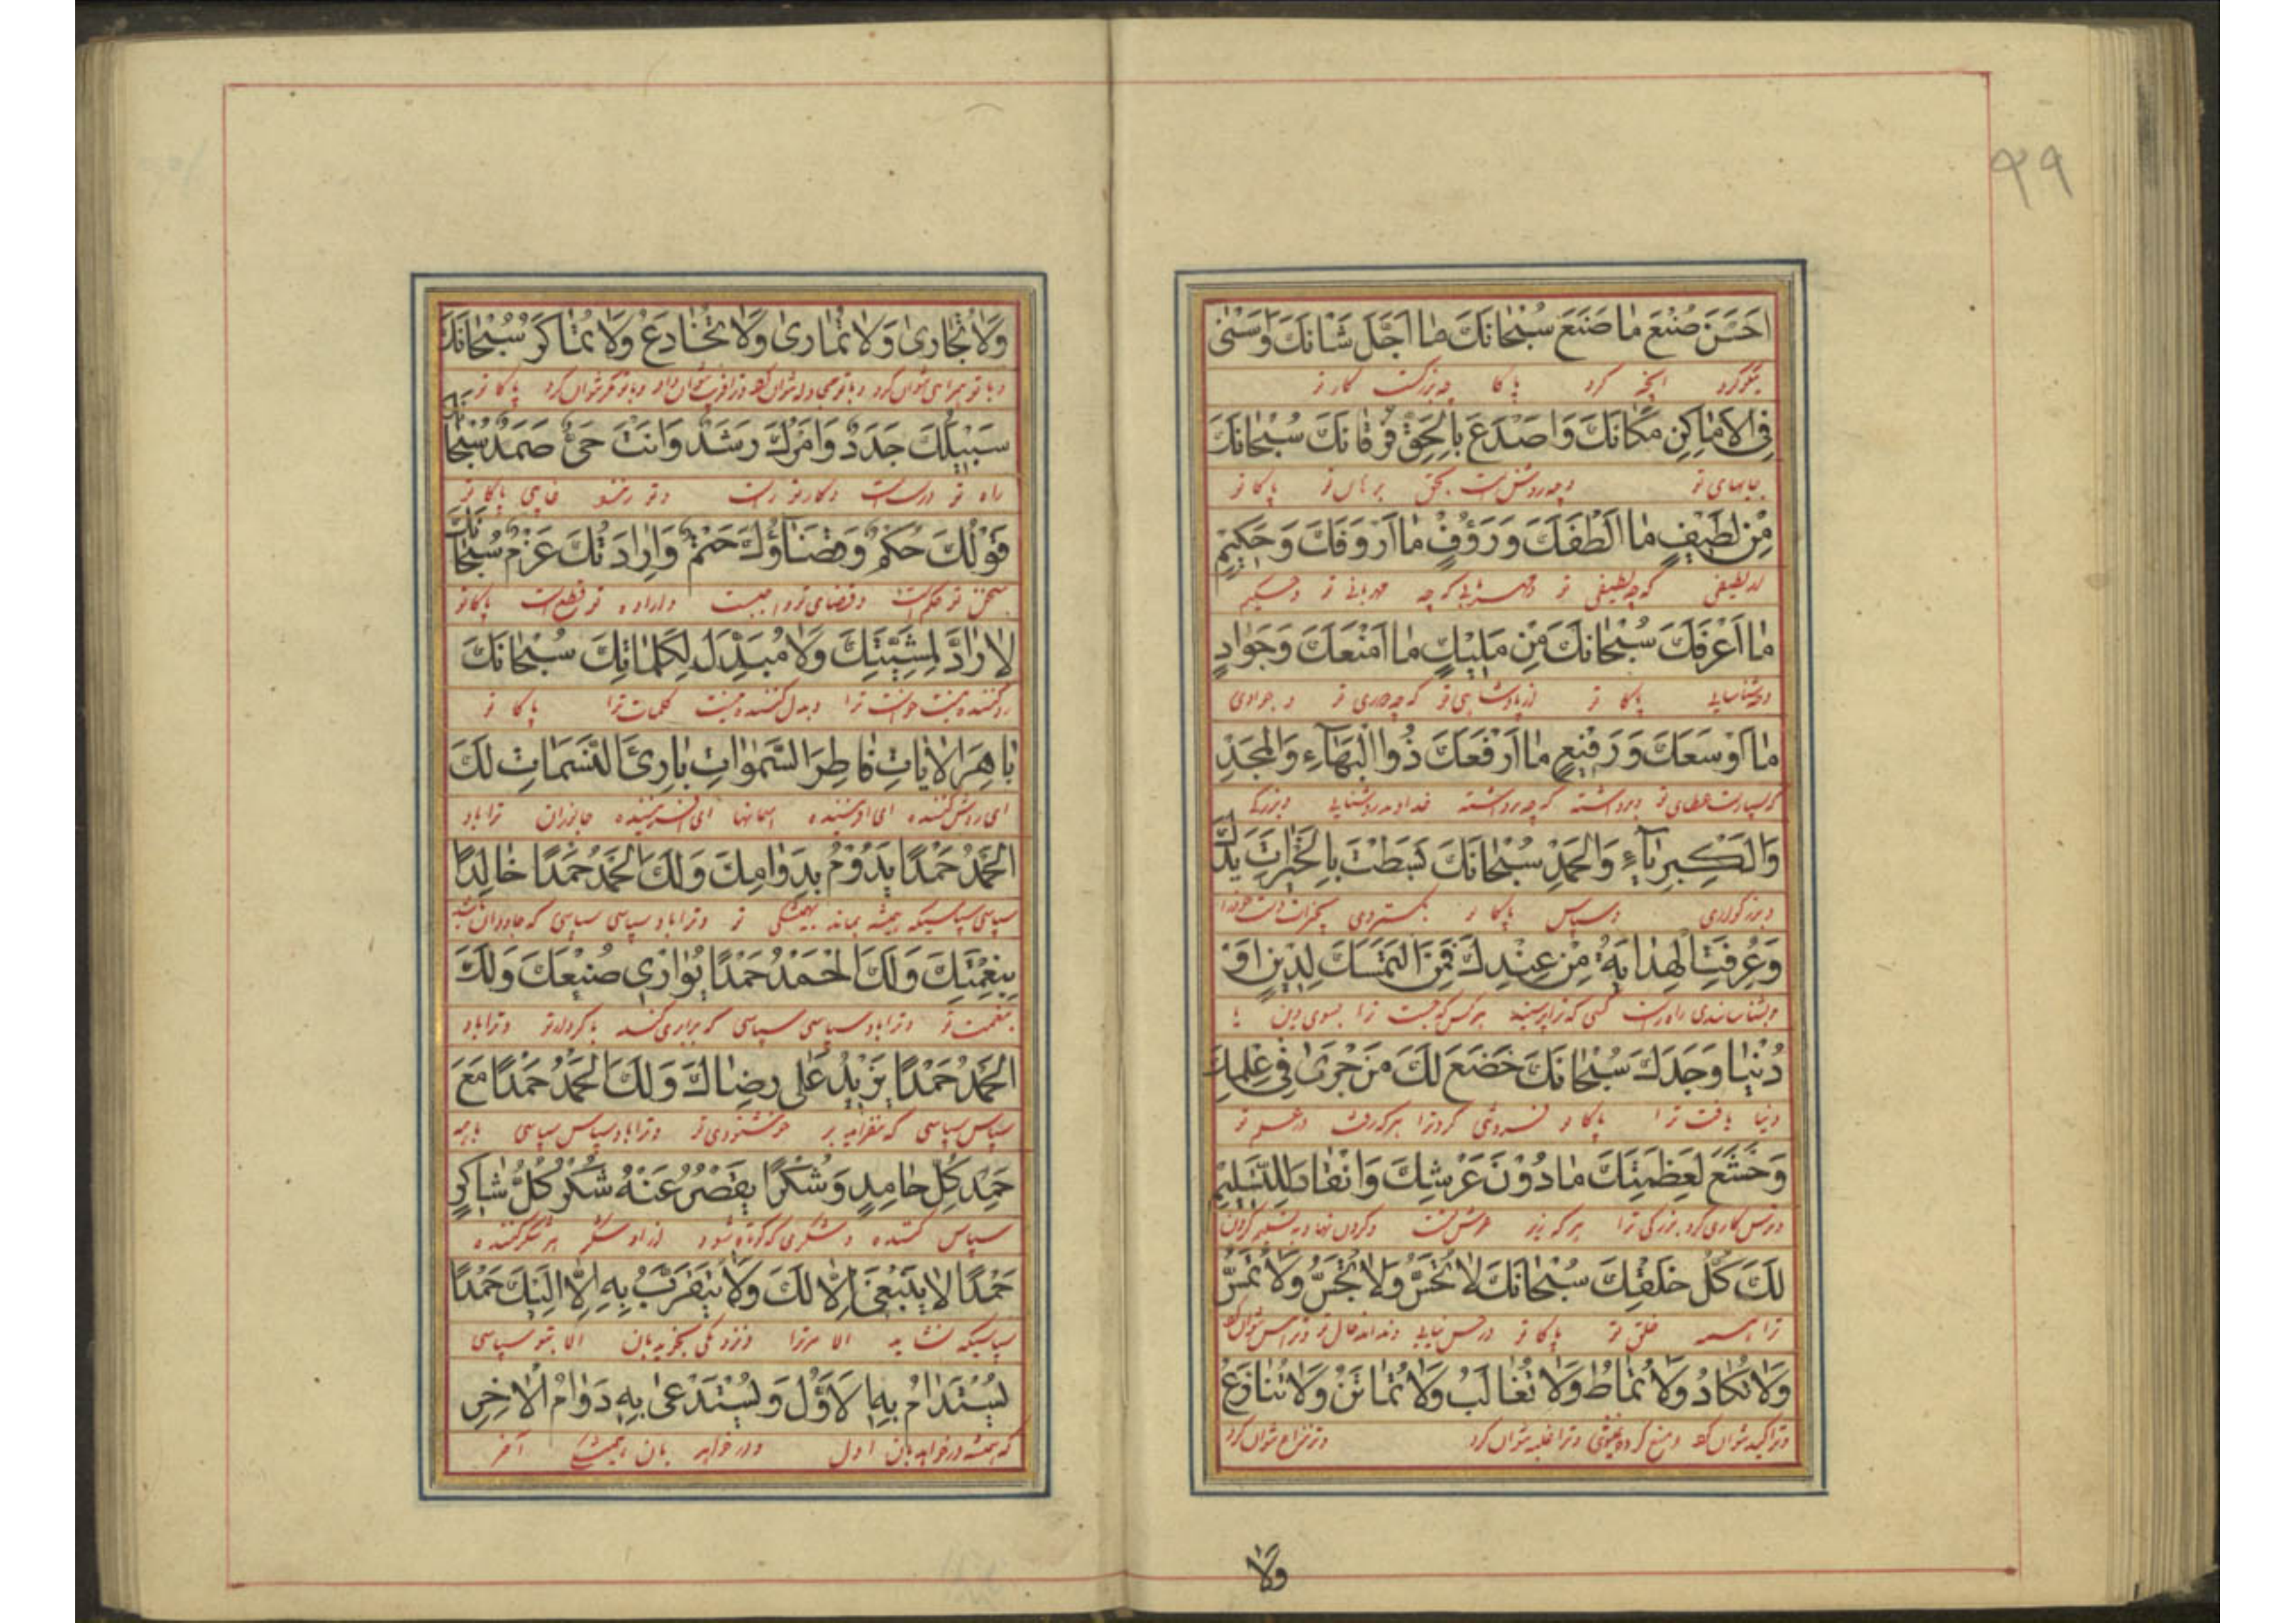 ٩٩
اَحْسَنَ صُنْعَ مٰا صَنَعَ سُبْحٰانَكَ مٰا اَجَلَّ شَاْنَكَ وَاَسْنٰى
نیکو کرد آنچه کرد پاکا چه بزرگست کار تو
فِى الْاَمٰاكِنِ مَكٰانَكَ وَاَصْدَعَ بِالْحَقِّ فُرْقٰانَكَ سُبْحٰانَكَ
جایهای تو و چه روشن است بحق برهان تو پاکا تو
مِنْ لَطِيفٍ مٰا اَلْطَفَكَ وَرَؤُفٍ مٰا اَرْوَفَكَ وَحَكِيمٍ
از لطیفی که چه لطیفی تو و مهربانی که چه مهربانی تو و حکیم
مٰا اَعْرَفَكَ سُبْحٰانَكَ مِنْ مَلِيْكٍ مٰا اَمْنَعَكَ وَجَوٰادٍ
پاکا تو از پادشاهی تو که چه تو و جوادی
مٰا اَوْسَعَكَ وَرَفِيْعٍ مٰا اَرْفَعَكَ ذُوالْبَهٰآءِ وَالْمَجْدِ
عطای تو و برداشته که چه برداشته خداوند روشنایی و بزرگی
وَالْكِبْرِيٰآءِ وَالْحَمْدِ سُبْحٰانَكَ بَسَطْتَ بِالْخَيْرٰاتِ يَدَكَ
و بزرگواری و سپاس پاکا تو بگستردی بخیرات دست خود را
وَعُرِفَتِ الْهِدٰايَةُ مِنْ عِنْدِكَ فَمَنِ الْتَمَسَكَ لِدِيْنٍ اَوْ
هر کس که جست ترا بسوی دین یا
دُنْيٰا وَجَدَكَ سُبْحٰانَكَ خَضَعَ لَكَ مَنْ جَرٰى فِى عِلْمِكَ
دنیا یافت ترا پاکا تو فروتنی کرد ترا هر که رفت در علم تو
وَخَشَعَ لِعَظَمَتِكَ مٰا دُوْنَ عَرْشِكَ وَانْقٰادَ لِلتَّسْلِيْمِ
و ترس کاری کرد بزرگی ترا هر که زیر عرش تست
لَكَ كُلُّ خَلْقِكَ سُبْحٰانَكَ لٰا تُحَسُّ وَلٰا تُجَسُّ وَلٰا تُمَسُّ
ترا همه خلق تو پاکا تو در حس نیایی
وَلٰا تُكٰادُ وَلٰا تُمٰاطُ وَلٰا تُغٰالَبُ وَلٰا تُمٰاتَنُ وَلٰا تُنٰازَعُ
و ترا غلبه نتوان کرد و نزاع نتوان کرد
وَلٰا
وَلٰا تُجٰارٰى وَلٰا تُمٰارٰى وَلٰا تُخٰادَعُ وَلٰا تُمٰاكَرُ سُبْحٰانَكَ
و با تو همراهی نتوان کرد و با تو مکر نتوان کرد پاکا تو
سَبِيْلُكَ جَدَدٌ وَاَمْرُكَ رَشَدٌ وَاَنْتَ حَىٌّ صَمَدٌ سُبْحٰانَكَ
راه تو درست است و کار تو راست و تو زنده پاکا تو
قَوْلُكَ حُكْمٌ وَقَضٰآؤُكَ حَتْمٌ وَاِرٰادَتُكَ عَزْمٌ سُبْحٰانَكَ
سخن تو حکم است و قضای تو واجبست و اراده تو قطع است پاکا تو
لٰا رٰادَّ لِمَشِيَّتِكَ وَلٰا مُبَدِّلَ لِكَلِمٰاتِكَ سُبْحٰانَكَ
رد کننده نیست خواست ترا و بدل کننده نیست کلمات ترا پاکا تو
بٰاهِرَ الْاٰيٰاتِ فٰاطِرَ السَّمٰوٰاتِ بٰارِئَ النَّسَمٰاتِ لَكَ
ای روشن کننده ای آفریننده آسمانها ای آفریننده جانوران ترا باد
الْحَمْدُ حَمْدًا يَدُوْمُ بِدَوٰامِكَ وَلَكَ الْحَمْدُ حَمْدًا خٰالِدًا
سپاسی سپاسیکه همیشه بماند بهمیشگی تو و ترا باد سپاسی سپاسی که جاودان باشد
بِنِعْمَتِكَ وَلَكَ الْحَمْدُ حَمْدًا يُوٰازِى صُنْعَكَ وَلَكَ
بنعمت تو و ترا باد سپاسی سپاسی که برابری کند با کردار تو و ترا باد
الْحَمْدُ حَمْدًا يَزِيْدُ عَلٰى رِضٰاكَ وَلَكَ الْحَمْدُ حَمْدًا مَعَ
سپاس سپاسی که بیفزاید بر خوشنودی تو و ترا باد سپاس سپاسی با همه
حَمْدِ كُلِّ حٰامِدٍ وَشُكْرًا يَقْصُرُ عَنْهُ شُكْرُ كُلِّ شٰاكِرٍ
سپاس کننده و شکری که کوتاه شود از او شکر هر شکر کننده
حَمْدًا لٰا يَنْبَغِى اِلّٰا لَكَ وَلٰا يُتَقَرَّبُ بِهِ اِلّٰا اِلَيْكَ حَمْدًا
سپاسیکه نشاید الا مر ترا و نزدیکی نجوید بآن الا بتو سپاسی
يُسْتَدٰامُ بِهِ الْاَوَّلُ وَيُسْتَدْعٰى بِهِ دَوٰامُ الْاٰخِرِ
که همیشه در خواهد بآن اول و در خواهد بآن همیشگی آخر